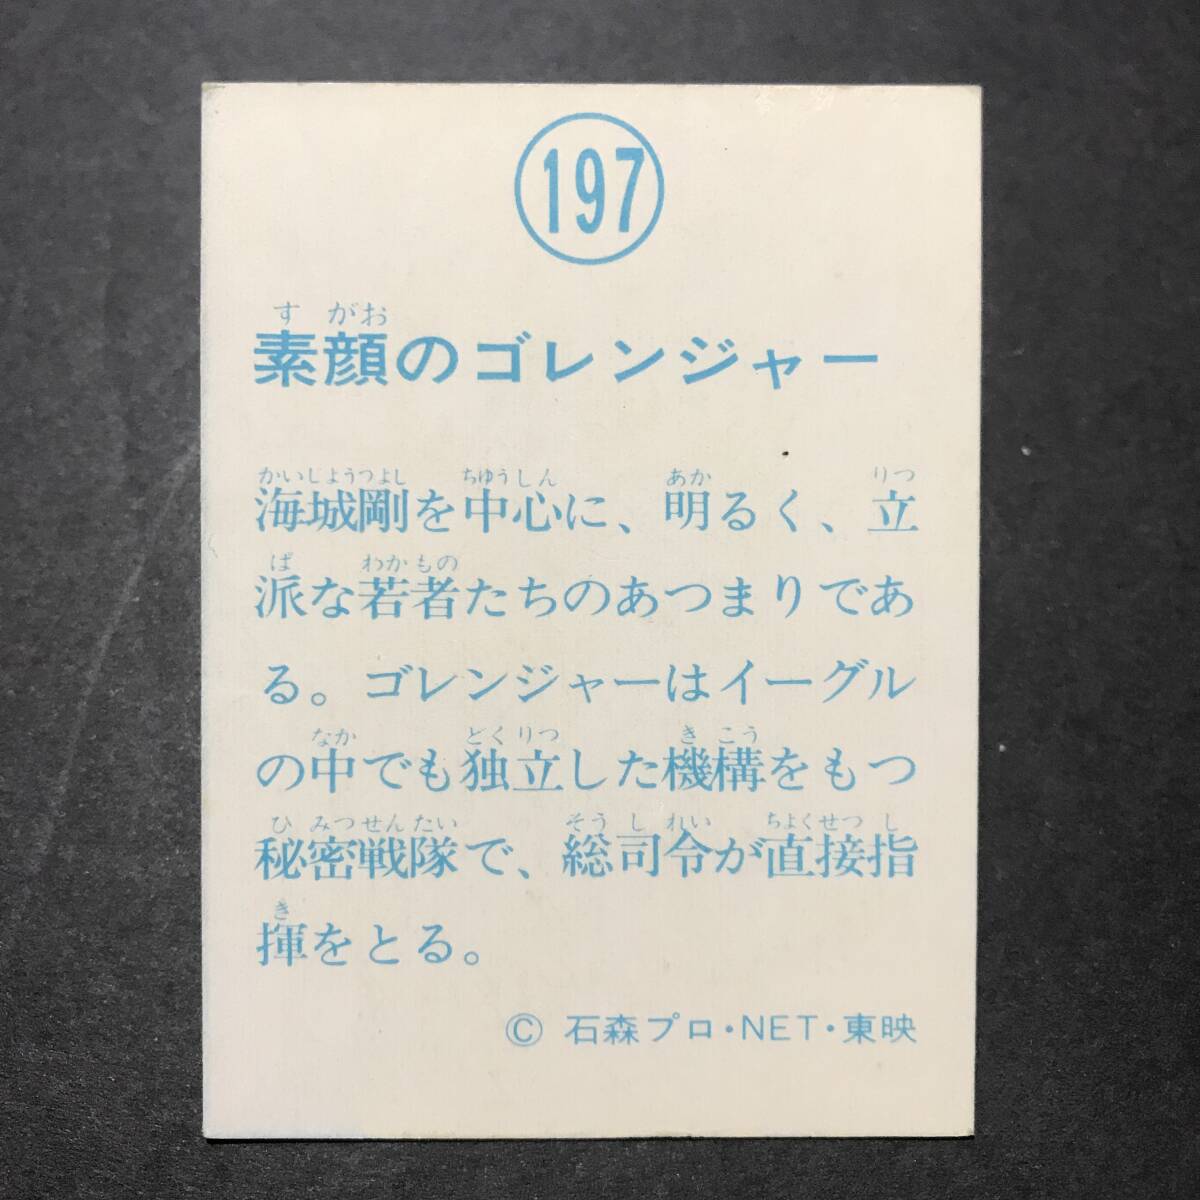 197
す がお
素顔のゴレンジャー
かいじょうつよし ちゅうしん あか りつ
海城剛を中心に、明るく、立
ぱ わかもの
派な若者たちのあつまりであ
る。ゴレンジャーはイーグル
なか どくりつ き こう
の中でも独立した機構をもつ
ひ みつせんたい そう し れい ちょくせつ し
秘密戦隊で、総司令が直接指
き
揮をとる。
© 石森プロ・NET・東映